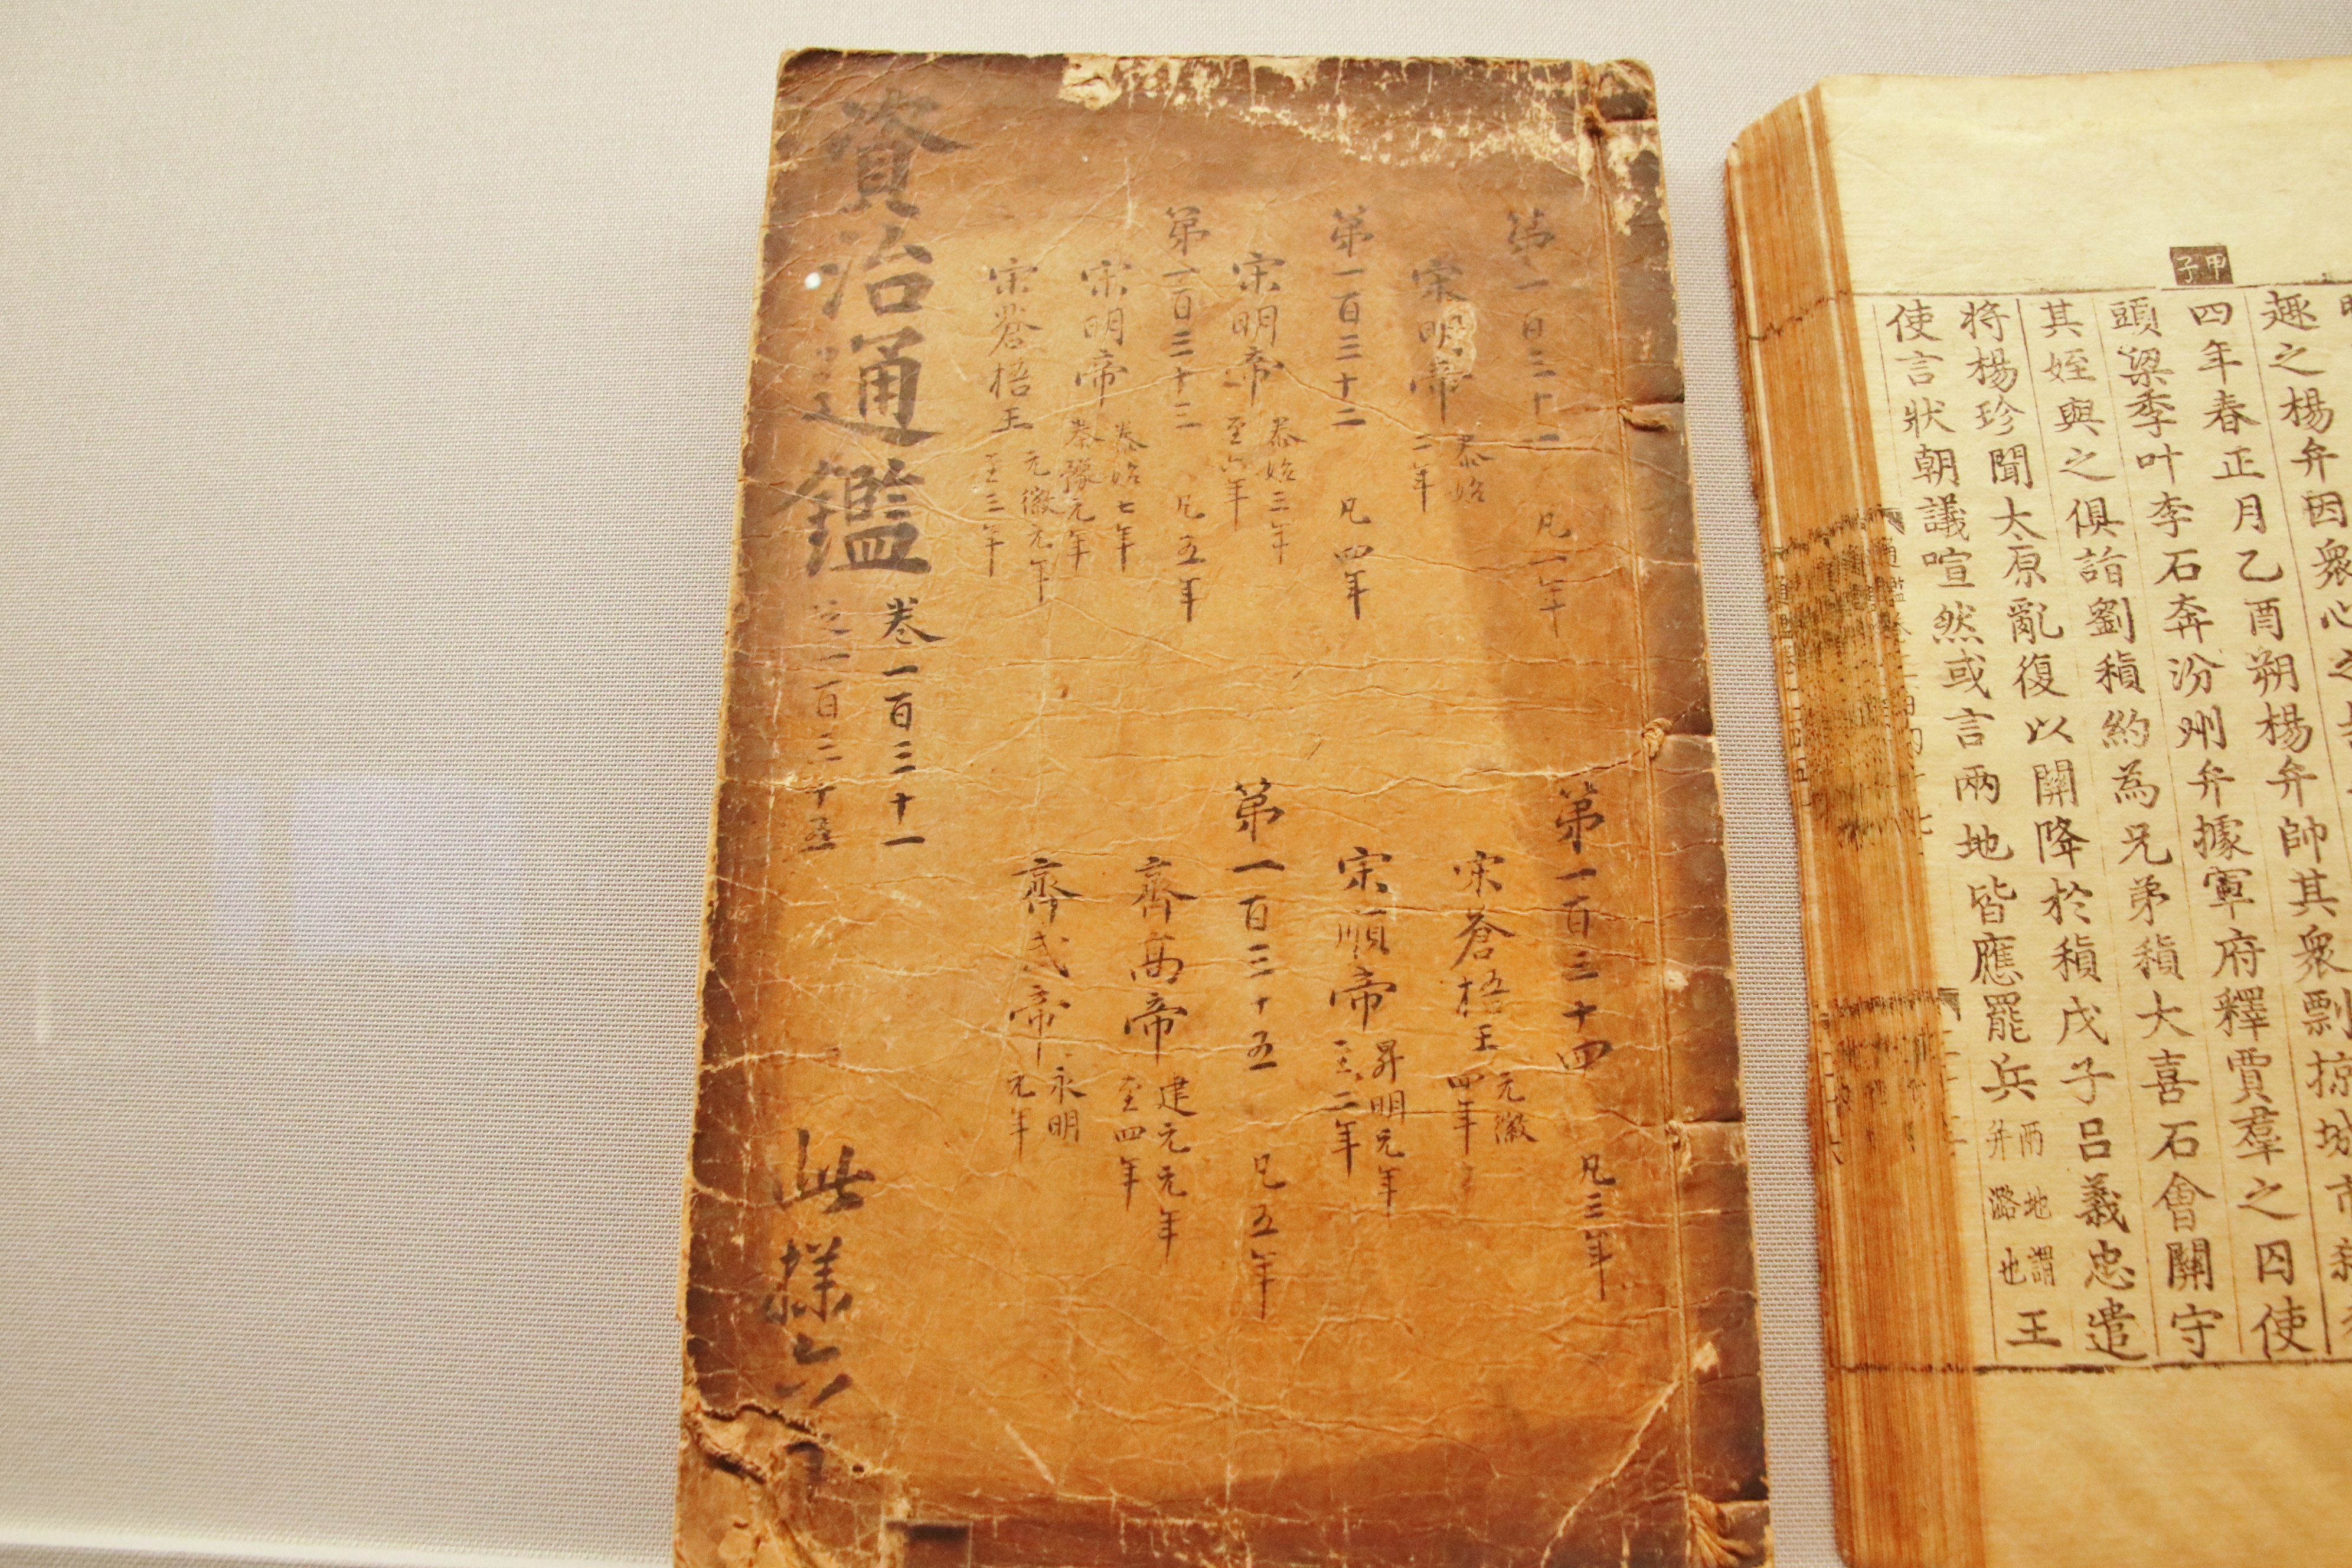 資治通鑑
卷一百三十一
之一百三十五
第一百三十一 凡一年
宋明帝 泰始
二年
第一百三十二 凡四年
宋明帝 泰始三年
至六年
第一百三十三 凡五年
宋明帝 泰始七年
泰豫元年
宋蒼梧王 元徽元年
至三年
第一百三十四 凡三年
宋蒼梧王 元徽
四年
宋順帝 昇明元年
至二年
第一百三十五 凡五年
齊高帝 建元元年
至四年
齊武帝 永明
元年
此樣六
甲子
趣之楊弁因衆心之
四年春正月乙酉朔楊弁帥其衆剽掠城市
頭梁季叶李石奔汾州弁據軍府釋賈羣之囚使
其姪與之俱詣劉稹約為兄弟稹大喜石會關守
將楊珍聞太原亂復以關降於稹戊子呂義忠遣
使言狀朝議喧然或言兩地皆應罷兵 兩地謂
并潞也 王